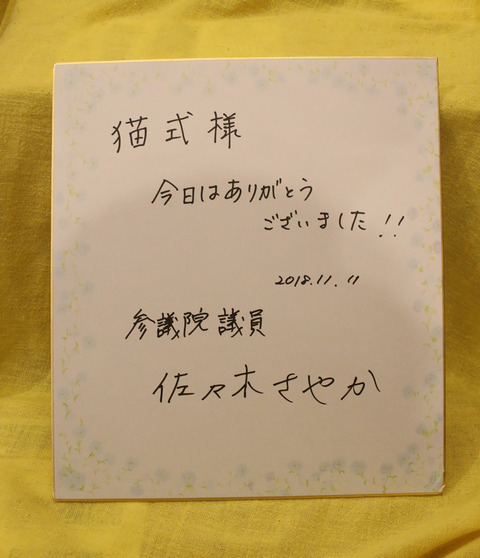 猫式様
今日はありがとう
ございました!!
2018.11.11
参議院議員
佐々木さやか